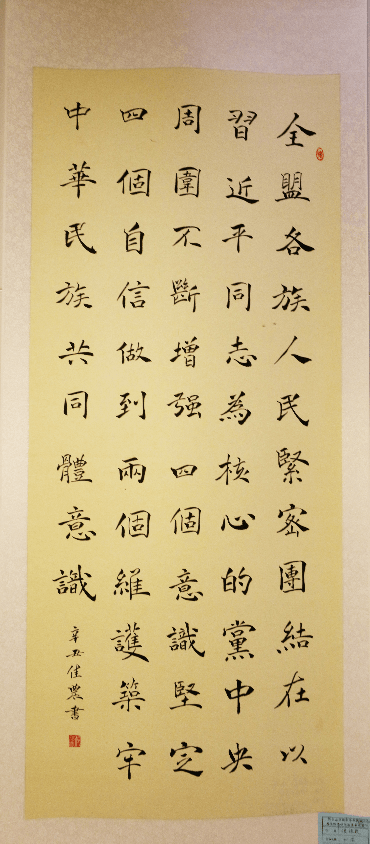 全盟各族人民緊密團結在以
習近平同志為核心的黨中央
周圍不斷增强四個意識堅定
四個自信做到兩個維護築牢
中華民族共同體意識
辛丑佳農書